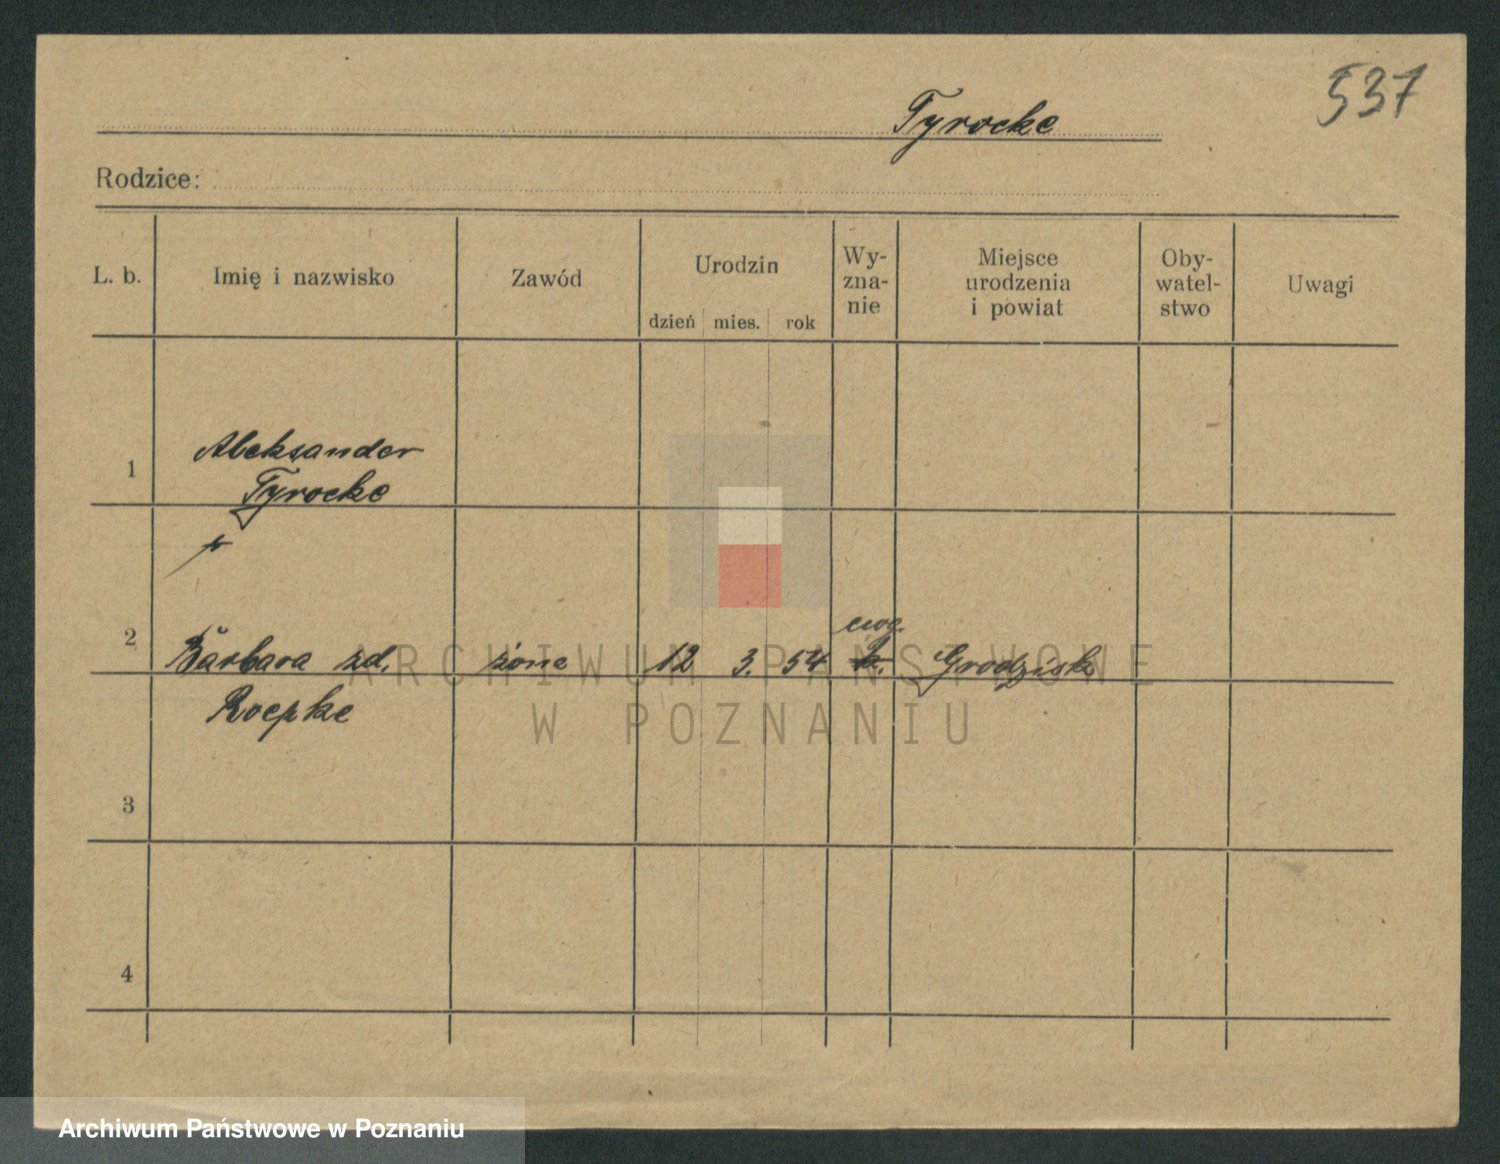 537
Tyrocke
Rodzice:
L. b. Imię i nazwisko Zawód Urodzin dzień mies. rok Wy-zna-nie Miejsce urodzenia i powiat Oby-watel-stwo Uwagi
1 Aleksander
Tyrocke
ewg.
2 Barbara zd. żona 12 3. 54 k. Grodzisk
Roepke
3
4
ARCHIWUM PAŃSTWOWE
W POZNANIU
Archiwum Państwowe w Poznaniu